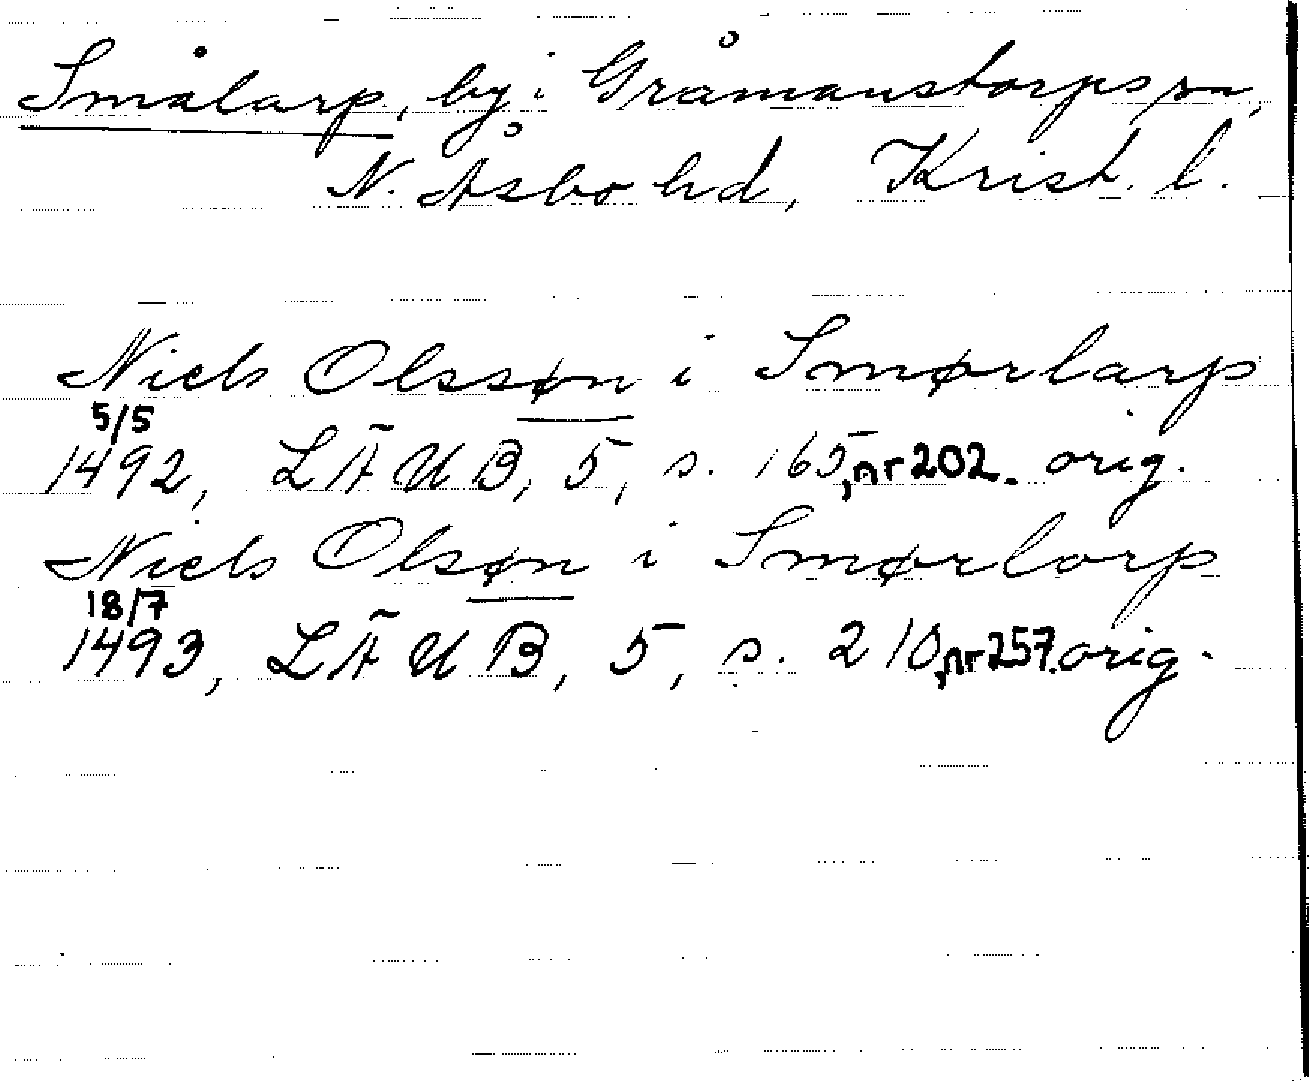 Smålarp, by i Gråmanstorps sn,
N. Åsbo hd, Krist. l.
Niels Olssøn i Smørlarp
5/5
1492, LÄUB, 5, s. 165, nr 202. orig.
Niels Olsøn i Smørlorp
18/7
1493, LÄUB, 5, s. 210, nr 257. orig.